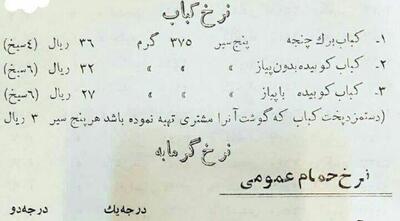 نرخ کباب
۱- کباب برگ چنجه پنج سیر ۳۷۵ گرم ۳۶ ریال (٤ سیخ)
۲- کباب کوبیده بدون پیاز » » » ۳۲ ریال (۶ سیخ)
۳ - کباب کوبیده با پیاز » » » ۲۷ ریال (۶ سیخ)
(دستمزد پخت کباب که گوشت آنرا مشتری تهیه نموده باشد هر پنج سیر ۳ ریال
نرخ گرمابه
نرخ حمام عمومی
درجه یك درجه دو